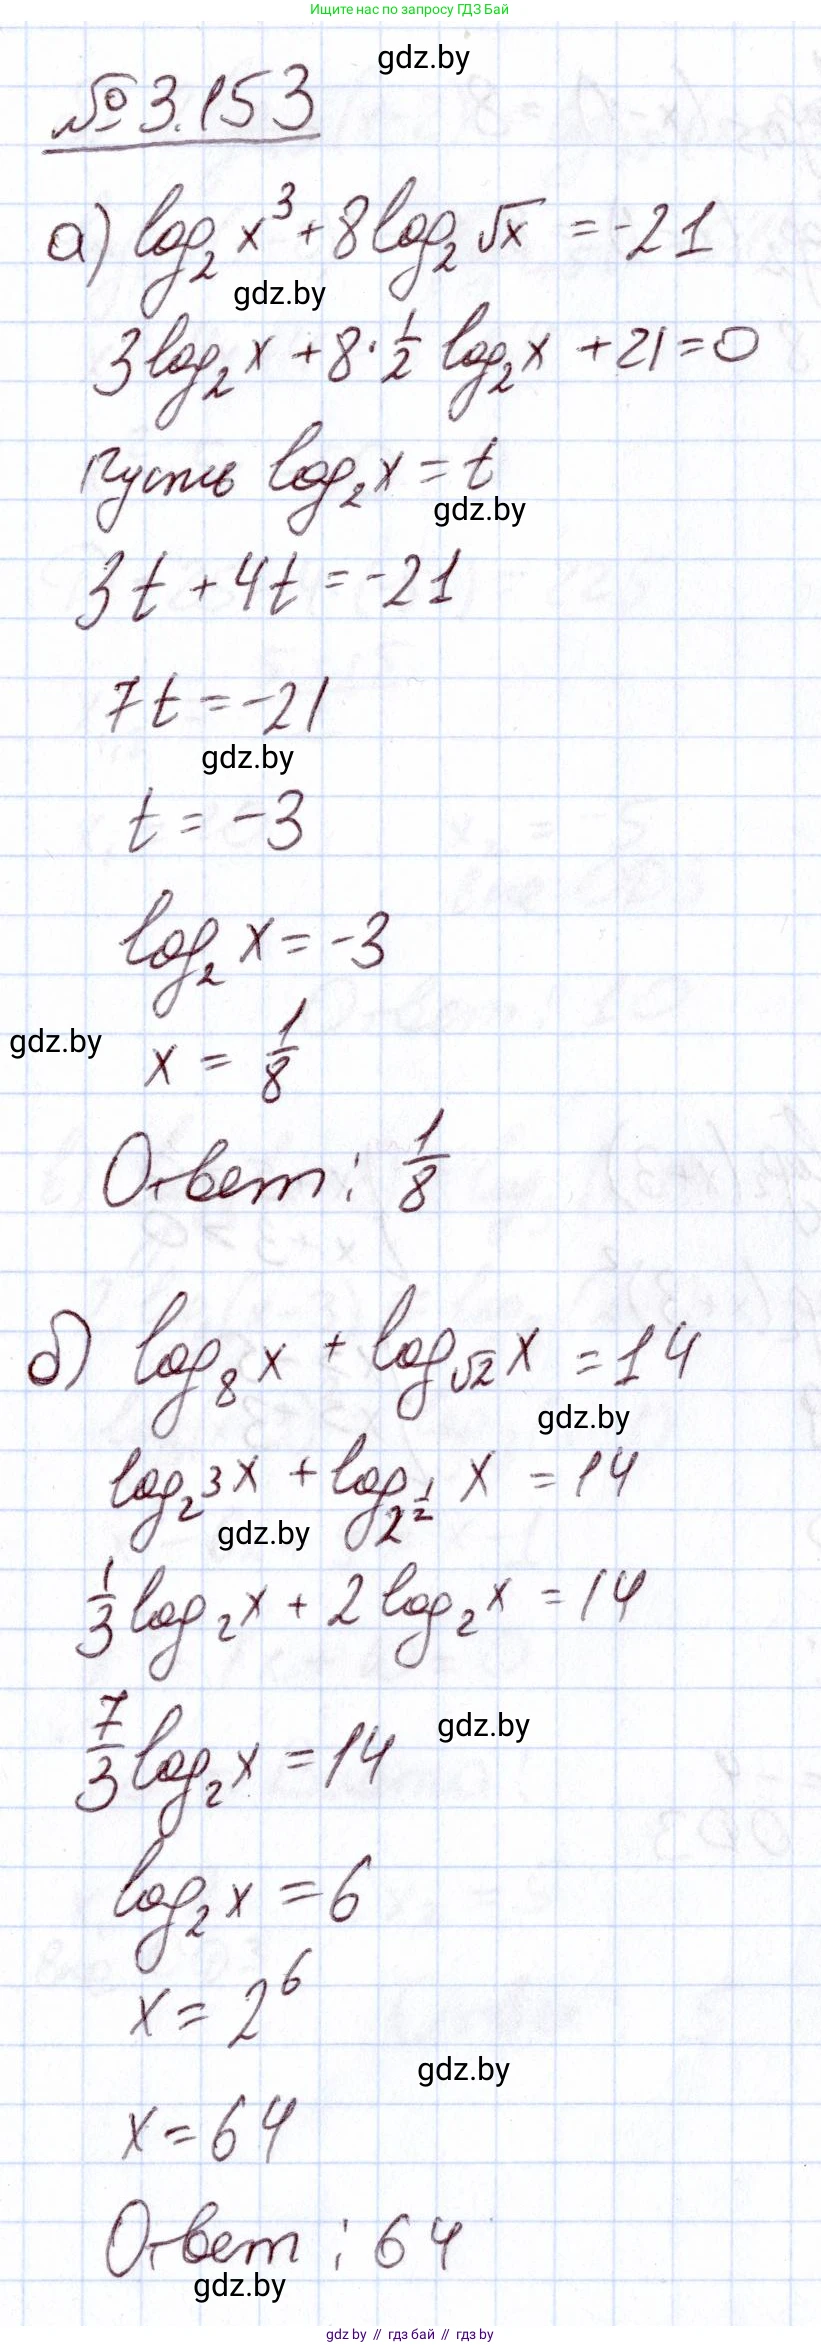 Ищите нас по запросу ГДЗ Бай
gdz.by
№ 3.153
а) log₂ x³ + 8 log₂ √x = -21
gdz.by
3 log₂ x + 8 · 1/2 log₂ x + 21 = 0
Пусть log₂ x = t
gdz.by
3t + 4t = -21
7t = -21
gdz.by
t = -3
log₂ x = -3
gdz.by
x = 1/8
Ответ: 1/8
б) log₈ x + log_√2 x = 14
gdz.by
log_2³ x + log_2^(1/2) x = 14
gdz.by
1/3 log₂ x + 2 log₂ x = 14
gdz.by
7/3 log₂ x = 14
log₂ x = 6
x = 2⁶
gdz.by
x = 64
Ответ: 64
gdz.by
gdz by // гдз бай // gdz by